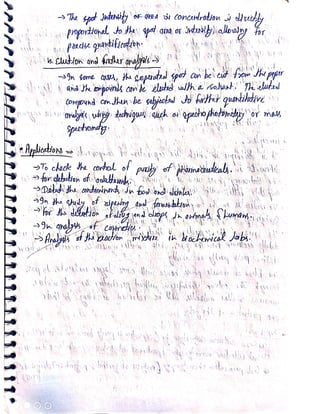 → The spot Intensity or area is concentration is directly
proportional to the spot area or intensity, allowing for
precise quantification.
Elution and further analysis →
→ In some cases, the separated spot can be cut from the paper
and the compounds can be eluted with a solvent. The eluted
compound can then be subjected to further quantitative
analysis using techniques such as spectrophotometry or mass
spectrometry.
• Applications
→ To check the control of purity of pharmaceuticals.
→ For detection of
→ Detect the contaminants in food and drinks.
→ In the study of ripening and fermentation
→ For the detection of drugs and dopes in animals & human.
→ In analysis of cosmetics.
→ Analysis of the reaction mixture in biochemical labs.